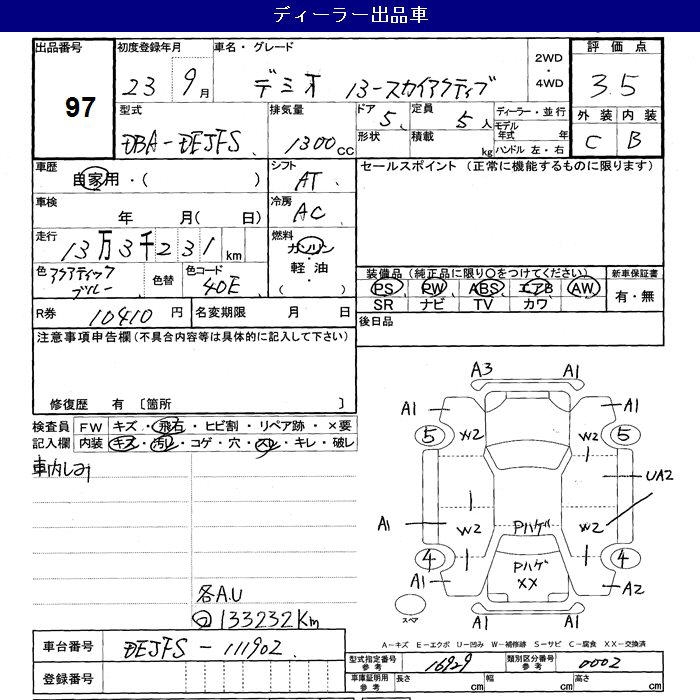 ディーラー出品車
出品番号 97
初度登録年月 23 9月
車名・グレード デミオ 13-スカイアクティブ
2WD・4WD
評価点 3.5
外装 内装
C B
型式 DBA-DEJFS
排気量 1300cc
ドア 5
定員 5人
形状
積載 kg
ディーラー・並行
モデル年式 年
ハンドル 左・右
車歴 自家用・( )
シフト AT
セールスポイント (正常に機能するものに限ります)
車検 年 月( 日)
冷房 AC
走行 13万3千231km
燃料 ガソリン・軽油・( )
色 アクアティックブルー
色替
色コード 40E
装備品 (純正品に限り○をつけてください)
新車保証書
PS PW ABS エアB AW
SR ナビ TV カワ
有・無
R券 10410円
名変期限 月 日
後日品
注意事項申告欄(不具合内容等は具体的に記入して下さい)
修復歴 有 〔箇所 〕
検査員記入欄
FW キズ・飛石・ヒビ割・リペア跡・×要
内装 キズ・汚レ・コゲ・穴・スレ・キレ・破レ
車内しみ
各A.U
133232Km
A3 A1
A1 A1
5 W2 W2 5
UA2
A1 W2 Pハゲ W2
4 Pハゲ 4
XX
A1 A2
スペア
A1 A1
A-キズ E-エクボ U-凹み W-補修跡 S-サビ C-腐食 XX-交換済
車台番号 DEJFS-111902
型式指定番号 参考 16929
類別区分番号 参考 0002
登録番号
車庫証明用 参考 長さ cm 幅 cm 高さ cm